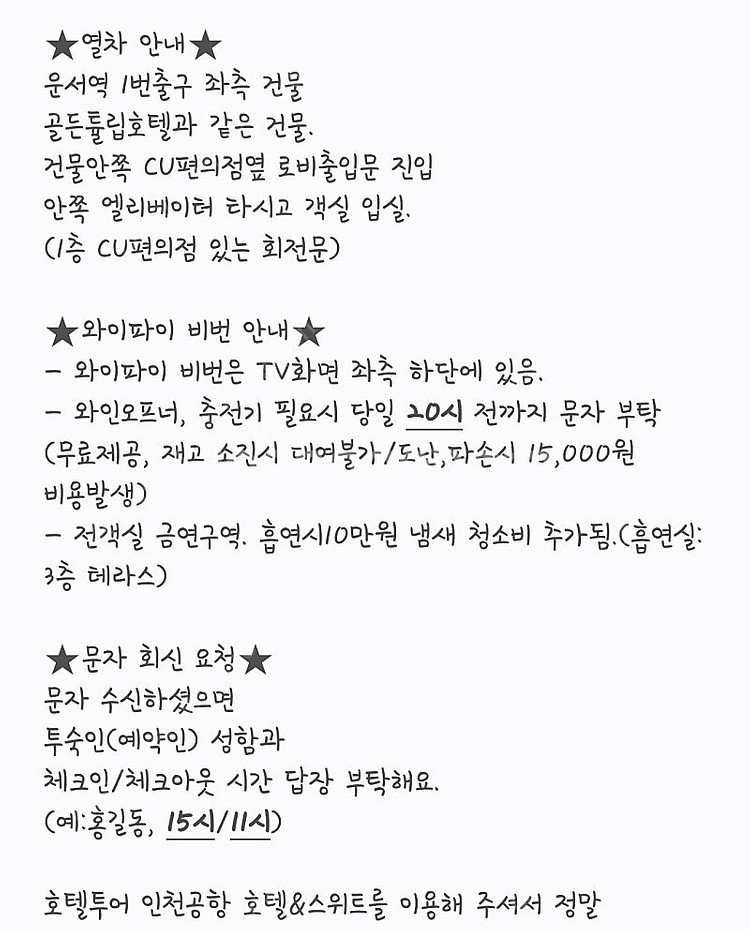 ★열차 안내★
운서역 1번출구 좌측 건물
골든튤립호텔과 같은 건물.
건물안쪽 CU편의점옆 로비출입문 진입
안쪽 엘리베이터 타시고 객실 입실.
(1층 CU편의점 있는 회전문)
★와이파이 비번 안내★
- 와이파이 비번은 TV화면 좌측 하단에 있음.
- 와인오프너, 충전기 필요시 당일 20시 전까지 문자 부탁
(무료제공, 재고 소진시 대여불가/도난,파손시 15,000원
비용발생)
- 전객실 금연구역. 흡연시10만원 냄새 청소비 추가됨.(흡연실:
3층 테라스)
★문자 회신 요청★
문자 수신하셨으면
투숙인(예약인) 성함과
체크인/체크아웃 시간 답장 부탁해요.
(예:홍길동, 15시/11시)
호텔투어 인천공항 호텔&스위트를 이용해 주셔서 정말